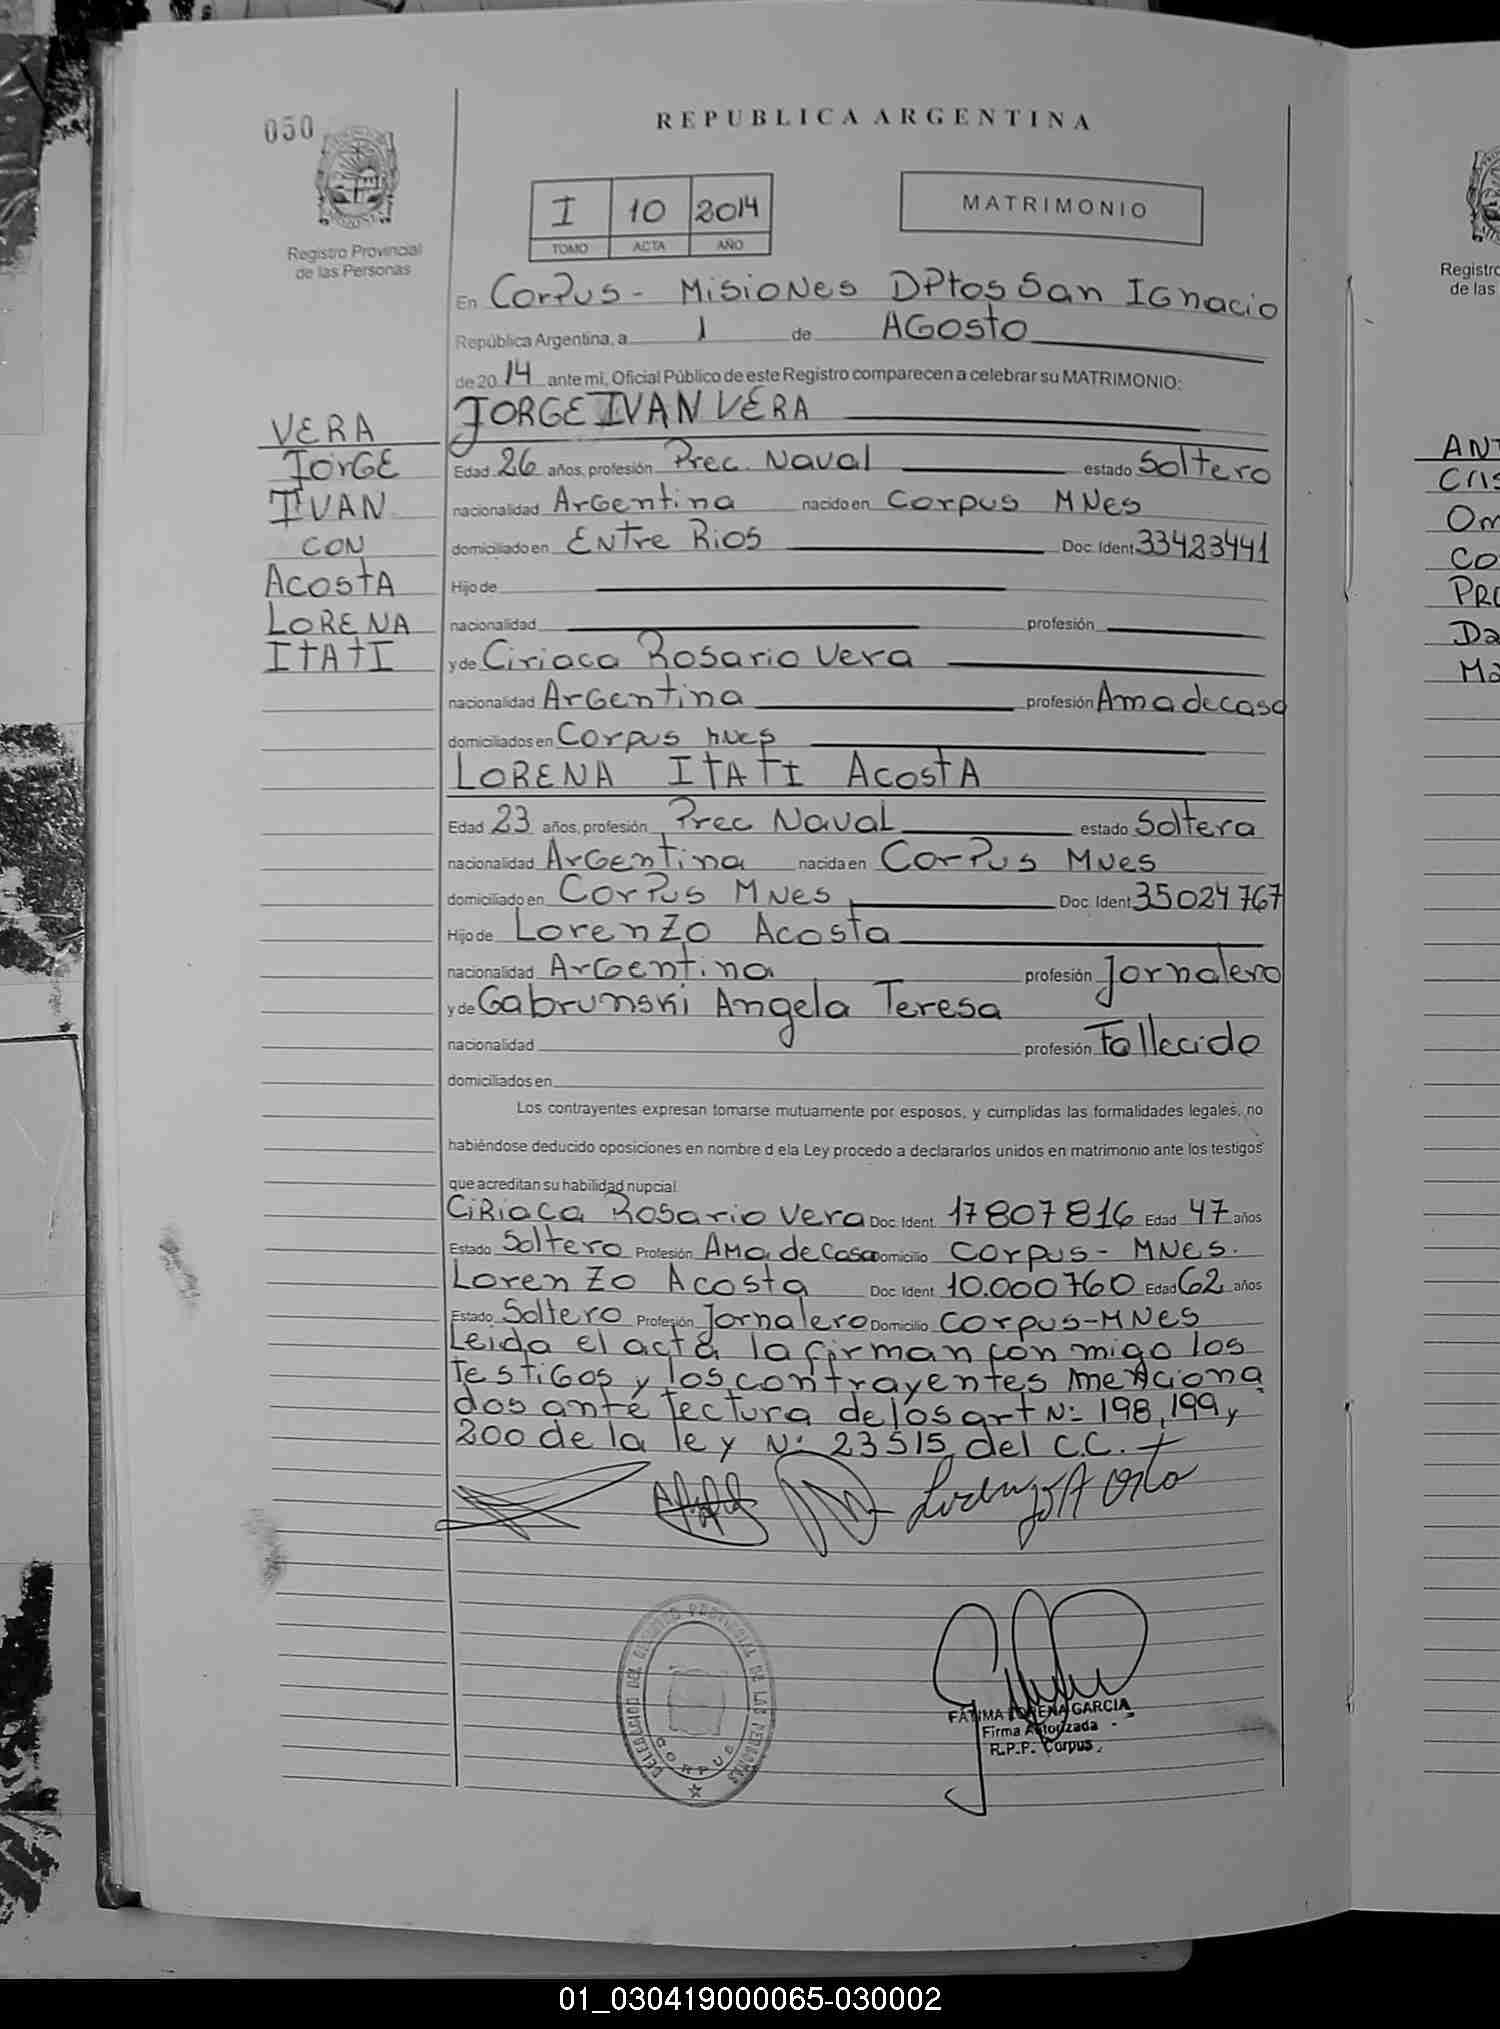 050
REPUBLICA ARGENTINA
I 10 2014
TOMO ACTA AÑO
MATRIMONIO
Registro Provincial
de las Personas
En Corpus - Misiones DPtos San Ignacio
República Argentina, a 1 de AGosto
de 20 14 ante mi, Oficial Público de este Registro comparecen a celebrar su MATRIMONIO:
VERA
JorGE
IVAN
CON
AcostA
LORENA
ItAtI
JORGE IVAN VERA
Edad 26 años, profesión Prec. Naval estado Soltero
nacionalidad Argentina nacido en Corpus MNes
domiciliado en Entre Rios Doc. Ident. 33423441
Hijo de
nacionalidad profesión
y de Ciriaca Rosario Vera
nacionalidad Argentina profesión Ama de casa
domiciliados en Corpus MNes
LORENA ItAtI AcostA
Edad 23 años, profesión Prec Naval estado Soltera
nacionalidad Argentina nacida en Corpus MNes
domiciliado en Corpus MNes Doc. Ident. 35024767
Hijo de Lorenzo Acosta
nacionalidad Argentina profesión Jornalero
y de Gabrunski Angela Teresa
nacionalidad profesión Fallecido
domiciliados en
Los contrayentes expresan tomarse mutuamente por esposos, y cumplidas las formalidades legales, no
habiéndose deducido oposiciones en nombre d ela Ley procedo a declararlos unidos en matrimonio ante los testigos
que acreditan su habilidad nupcial.
Ciriaca Rosario Vera Doc. Ident. 17807816 Edad 47 años
Estado Soltero Profesión Ama de Casa Domicilio Corpus - MNes.
Lorenzo Acosta Doc. Ident. 10.000760 Edad 62 años
Estado Soltero Profesión Jornalero Domicilio Corpus-MNes
Leida el acta la firman con migo los
testigos y los contrayentes menciona
dos ante lectura de los art Nº 198, 199 y
200 de la ley Nº 23515 del C.C.
Lorenzo Acosta
DELEGACION DEL REGISTRO PROVINCIAL DE LAS PERSONAS
CORPUS
FATIMA LORENA GARCIA
Firma Autorizada
R.P.P. Corpus
Registro
de las
ANT
Cris
Om
Co
PRO
Da
Ma
01_030419000065-030002